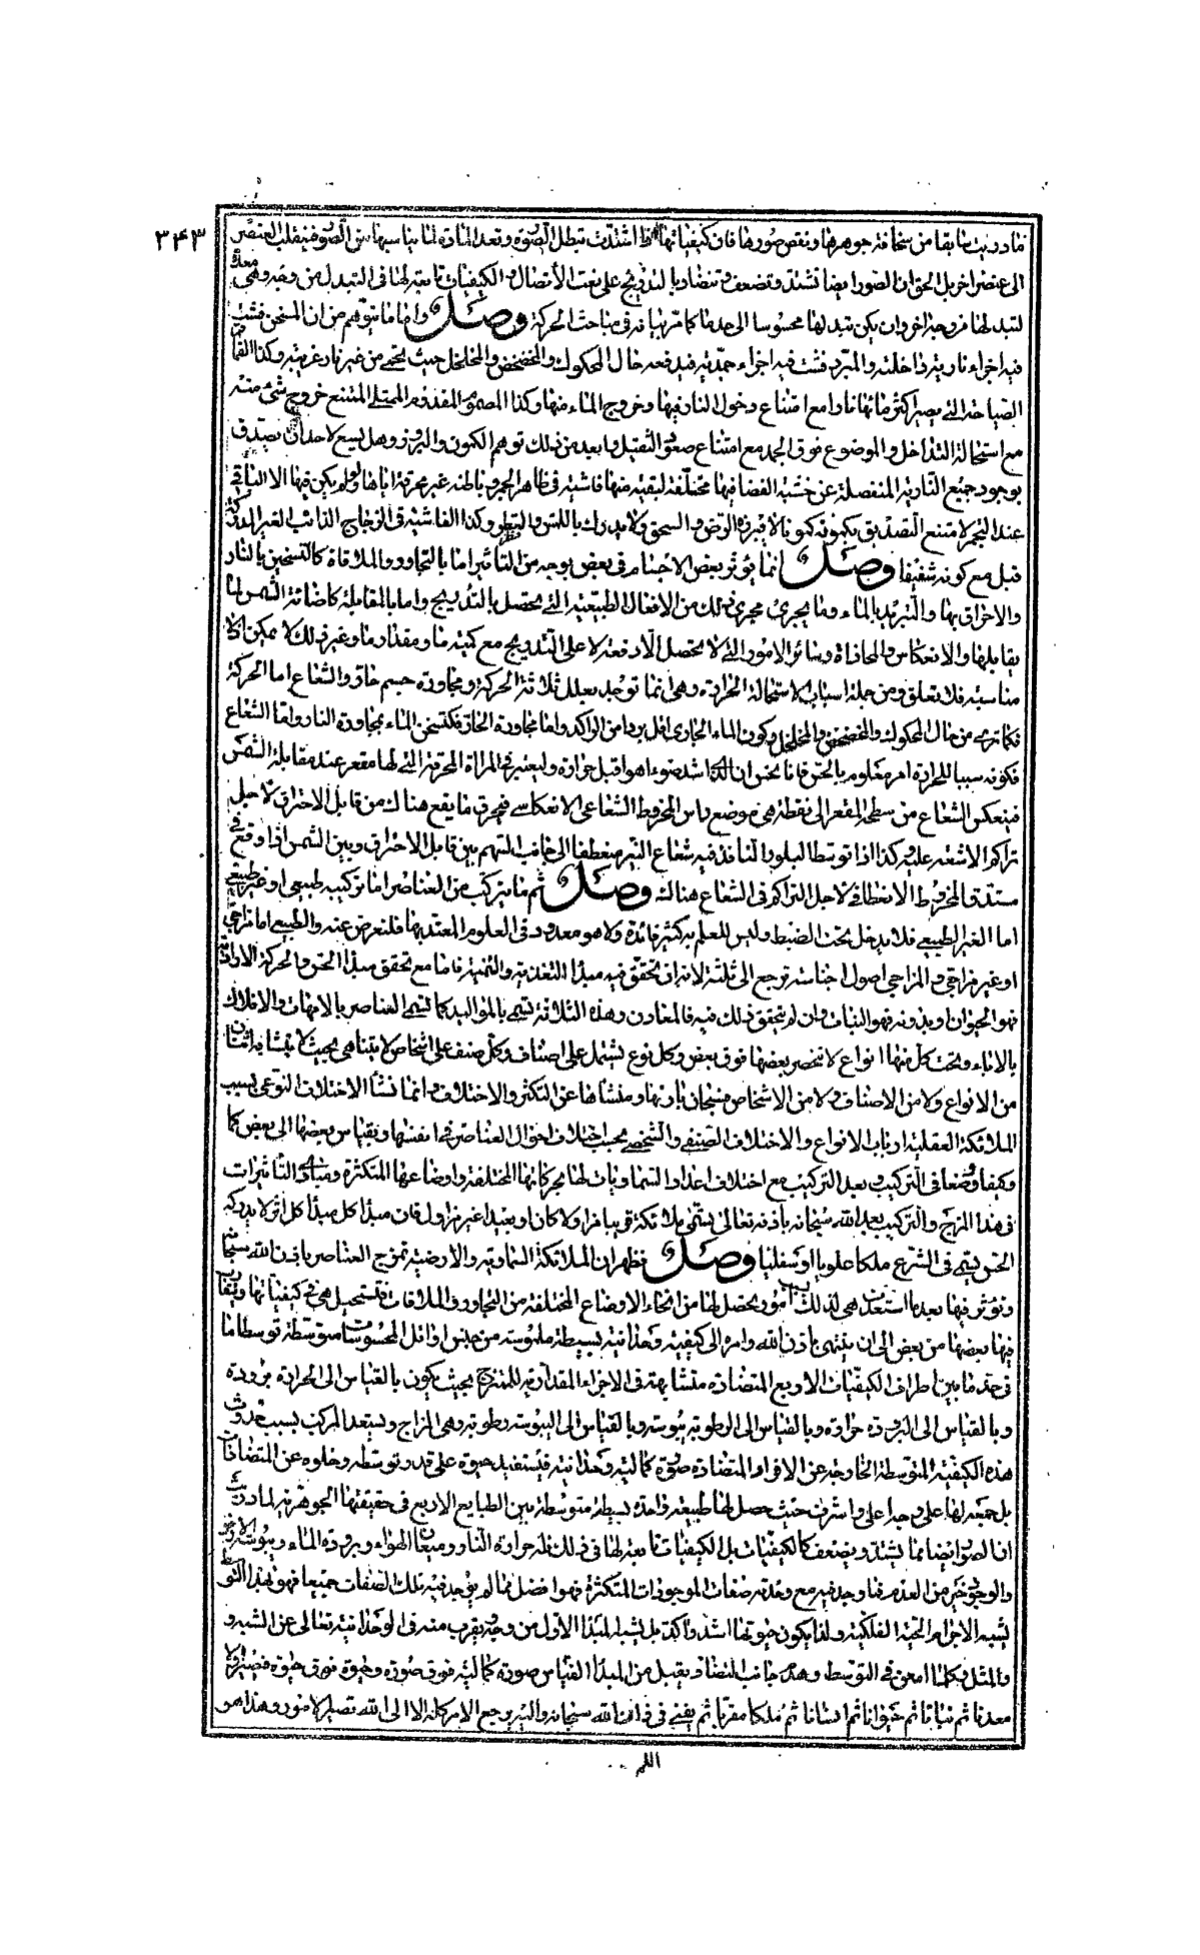 ٣٤٣
ما دريت سابقا من سخافة جوهرها ونقص صورها فان كيفياتها اذا اشتدت تبطل الصورة وتعد المادة لما يناسبها من الصور فينقلب العنصر
الى عنصر اخر بل الحق ان الصور ايضا تشتد وتضعف وتتضاد بالتدريج على نعت الاتصال والكيفيات تابعة لها فى التبدل من وجه وهى معدة
لتبدلها من وجه اخر وان يكن تبدلها محسوسا الى حد ما كما مر بيانه فى مباحث الحركة وصل واما ما يتوهم من ان المسخن فشت
فيه اجزاء نارية داخلته والمبرد فشت فيه اجزاء جمدية فيدفعه حال المحكوك والمخضخض والمخلخل حيث تحمى من غير نار غريبة وكذا القماقم
الصياحة التى يصير اكثر مائها نارا مع امتناع دخول النار فيها وخروج الماء منها وكذا المصموم المفدوم الممتلى الممتنع خروج شئ منه
مع استحالة التداخل والموضوع فوق الجمد مع امتناع صعود الثقيل وابعد من ذلك توهم الكمون والبروز وهل يسع لاحد ان يصدق
بوجود جميع النارية المنفصلة عن خشبة الغضا فيها مخلفة لبقية منها فاشية فى ظاهر الجمر وباطنه غير محرقة اياها ولو لم يكن فيها الا الباقى
عند التجمر لامتنع التصديق بكمونه كمونا لا يبرزه الرض والسحق ولا يدرك باللمس والنظر وكذا الفاشية فى الزجاج الذائب الغير المدركة
قبل مع كونه شفيفا وصل انما يؤثر بعض الاجسام فى بعض بوجه من التأثير اما بالتجاور والملاقاة كالتسخين بالنار
والاحراق بها والتبريد بالماء وما يجرى مجرى ذلك من الافعال الطبيعية التى يحصل بالتدريج واما بالمقابلة كاضائة الشمس لما
يقابلها والانعكاس والمحاذاة وسائر الامور التى لا يحصل الا دفعة لا على التدريج مع كمية ما ومقدار ما وغير ذلك لا يمكن الا
مناسبه فلا تعلق ومن جملة اسباب الاستحالة الحرارة وهى انما توجد بعلل ثلاثة الحركة ومجاورة جسم حار والشعاع اما الحركة
فكما ترى من حال المحكوك والمخضخض والمخلخل وكون الماء الجارى اقل بردا من الراكد واما مجاورة الحار فكتسخن الماء بمجاورة النار واما الشعاع
فكونه سببا للحرارة امر معلوم بالحس فانا نحس ان الذى اشد ضوءا هو اقبل حرارة وليعتبر فى المرآة المحرقة التى لها مقعر عند مقابلة الشمس
فينعكس الشعاع من سطحه المقعر الى نقطة هى موضع راس المخروط الشعاعى الانعكاسى فيحرق ما يقع هناك من قابل الاحتراق لاجل
تراكم الاشعة عليه وكذا اذا توسط البلور النافذ فيه شعاع النير منعطفا الى جانب السهم بين قابل الاحراق وبين الشمس اذا وقع فى
مستدق المخروط الانعطافى لاجل التراكم فى الشعاع هنالك وصل ثم ما يتركب من العناصر اما تركيبه طبيعى او غير طبيعى
اما الغير الطبيعى فلا يدخل تحت الضبط وليس للعلم به كثير فائدة ولا هو معدود فى العلوم المعتد بها فلنعرض عنه والطبيعى اما مزاجى
او غير مزاجى والمزاجى اصول اجناسه ترجع الى ثلثة لانه ان تحقق فيه مبدأ التغذية والتنمية فاما مع تحقق مبدأ الحس والحركة الارادية
فهو الحيوان او بدونه فهو النبات وان لم يتحقق ذلك فيه فالمعادن وهذه الثلاثة تسمى بالمواليد كما تسمى العناصر بالامهات والافلاك
بالاباء وتحت كل منها انواع لا تنحصر بعضها فوق بعض وكل نوع يشتمل على اصناف وكل صنف على اشخاص لا يتناهى بحيث لا يتشابه اثنان
من الانواع ولا من الاصناف ولا من الاشخاص فسبحان بارئها ومنشأها عن التكثر والاختلاف وانما نشأ الاختلاف النوعى بسبب
الملائكة العقلية ارباب الانواع والاختلاف الصنفى والشخصى بحسب اختلاف احوال العناصر فى انفسها وبقياس بعضها الى بعض كما
وكيفا ووضعا فى التركيب وبعد التركيب مع اختلاف اعداد السماويات لها بحركاتها المختلفة واوضاعها المتكثرة ومبادى التأثيرات
فى هذا المزج والتركيب بعد الله سبحانه باذنه تعالى يسمى ملائكة قريبا مزاولا كان او بعيدا غير مزاول فان مبدأ كل مبدأ كل اثر لا يدركه
الحس يسمى فى الشرع ملكا علويا او سفليا وصل فظهر ان الملائكة السماوية والارضية تمزج العناصر باذن الله سبحانه
وتؤثر فيها بعدما استعدت هى لذلك بسبب امور يحصل لها من انحاء الاوضاع المختلفة من التجاور والملاقات فتستحيل هى فى كيفياتها ويتقارب
فيها بعضها من بعض الى ان ينتهى باذن الله وامره الى كيفية وحدانية بسيطة ملموسة من جنس اوائل المحسوسات متوسطة توسطا ما
فى حد ما بين اطراف الكيفيات الاربع المتضادة متشابهة فى الاجزاء المقدارية للممتزج بحيث يكون بالقياس الى الحرارة برودة
وبالقياس الى البرودة حرارة وبالقياس الى الرطوبة يبوسة وبالقياس الى اليبوسة رطوبة وهى المزاج ويستعد المركب بسبب حدوث
هذه الكيفية المتوسطة الخارجة عن الافراد المتضادة صورة كمالية وحدانية فيستفيد حيوة على قدر توسطه وخلوه عن المتضادات
بل جمعه لها على وجه اعلى واشرف حيث حصل لها طبيعة واحدة بسيطة متوسطة بين الطبايع الاربع فى حقيقتها الجوهرية لما دريت
ان الصور ايضا مما يشتد ويضعف كالكيفيات بل الكيفيات تابعة لها فى ذلك فله حرارة النار وميعان الهواء وبرودة الماء ويبوسة الارض
والوجود خير من العدم فما وجد فيه مع وحدته صفات الموجودات المتكثرة فهو افضل مما لم يوجد فيه تلك الصفات جميعا فهو بهذا التوسط
يشبه الاجرام الحية الفلكية ولذا يكون حيوتها اشد واكد بل يشبه المبدأ الاول من وجه بقرب منه فى الوحدانية تعالى عن الشبه و
والمثل وكلما امعن فى التوسط وهدم جانب التضاد يقبل من المبدأ الفياض صورة كمالية فوق صورة وحيوة فوق حيوة فيصير اولا
معدنا ثم نباتا ثم حيوانا ثم انسانا ثم ملكا مقربا ثم يفنى فى ذات الله سبحانه واليه يرجع الامر كله الا الى الله تصير الامور وهذا هو
اللم